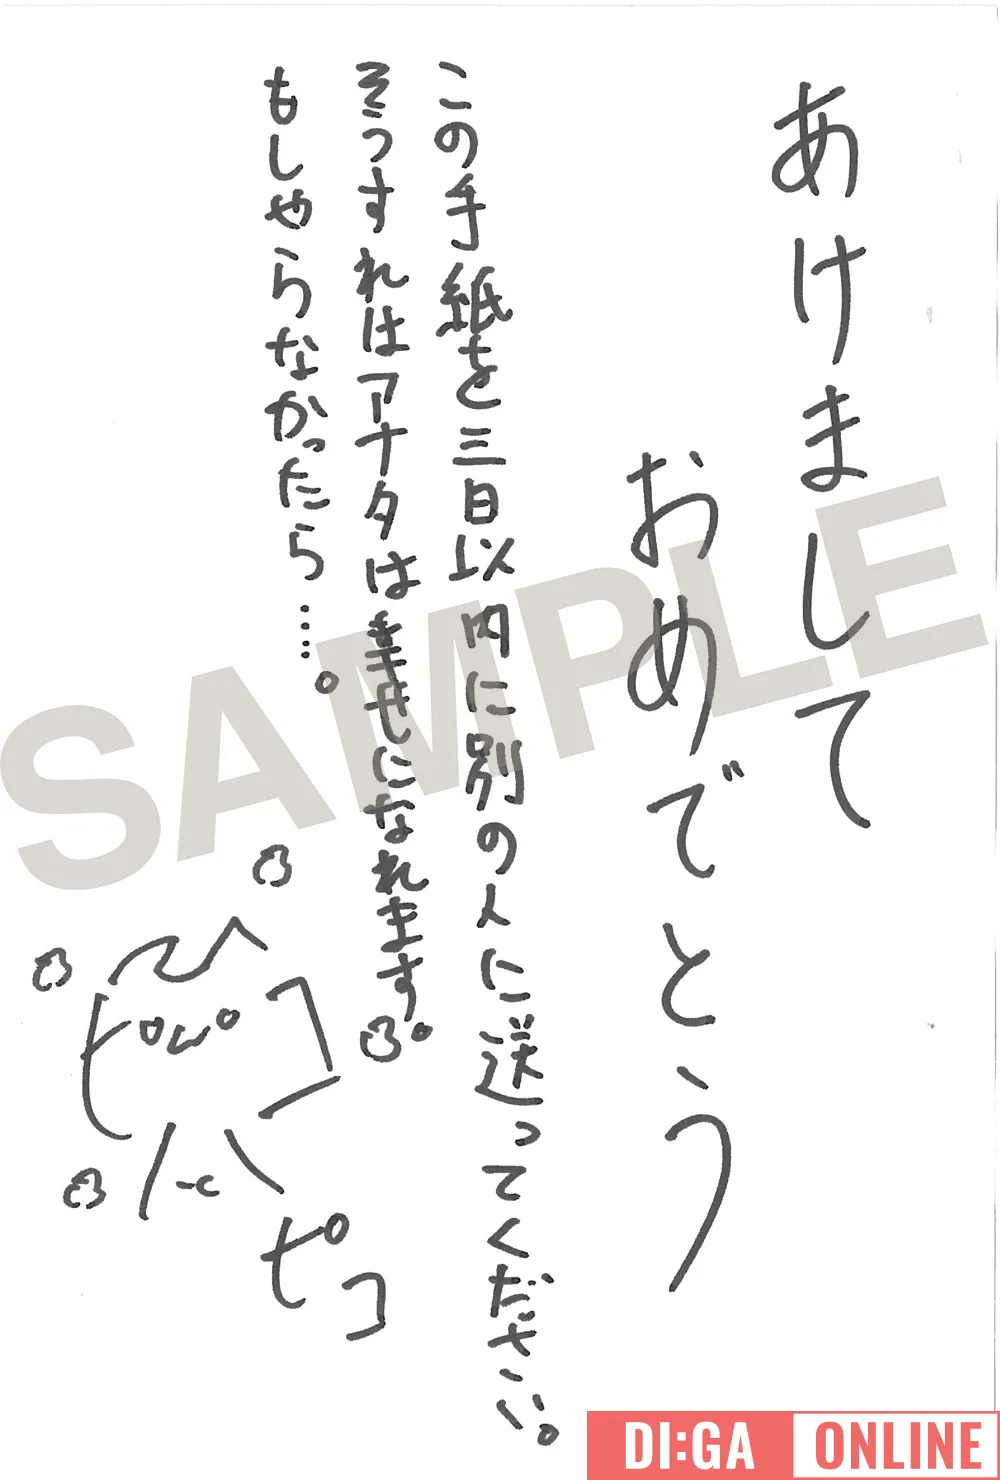 あけまして
おめでとう
この手紙を三日以内に別の人に送ってください。
そうすればアナタは幸せになれます。
もしやらなかったら……。
ピコ
SAMPLE
DI:GA ONLINE